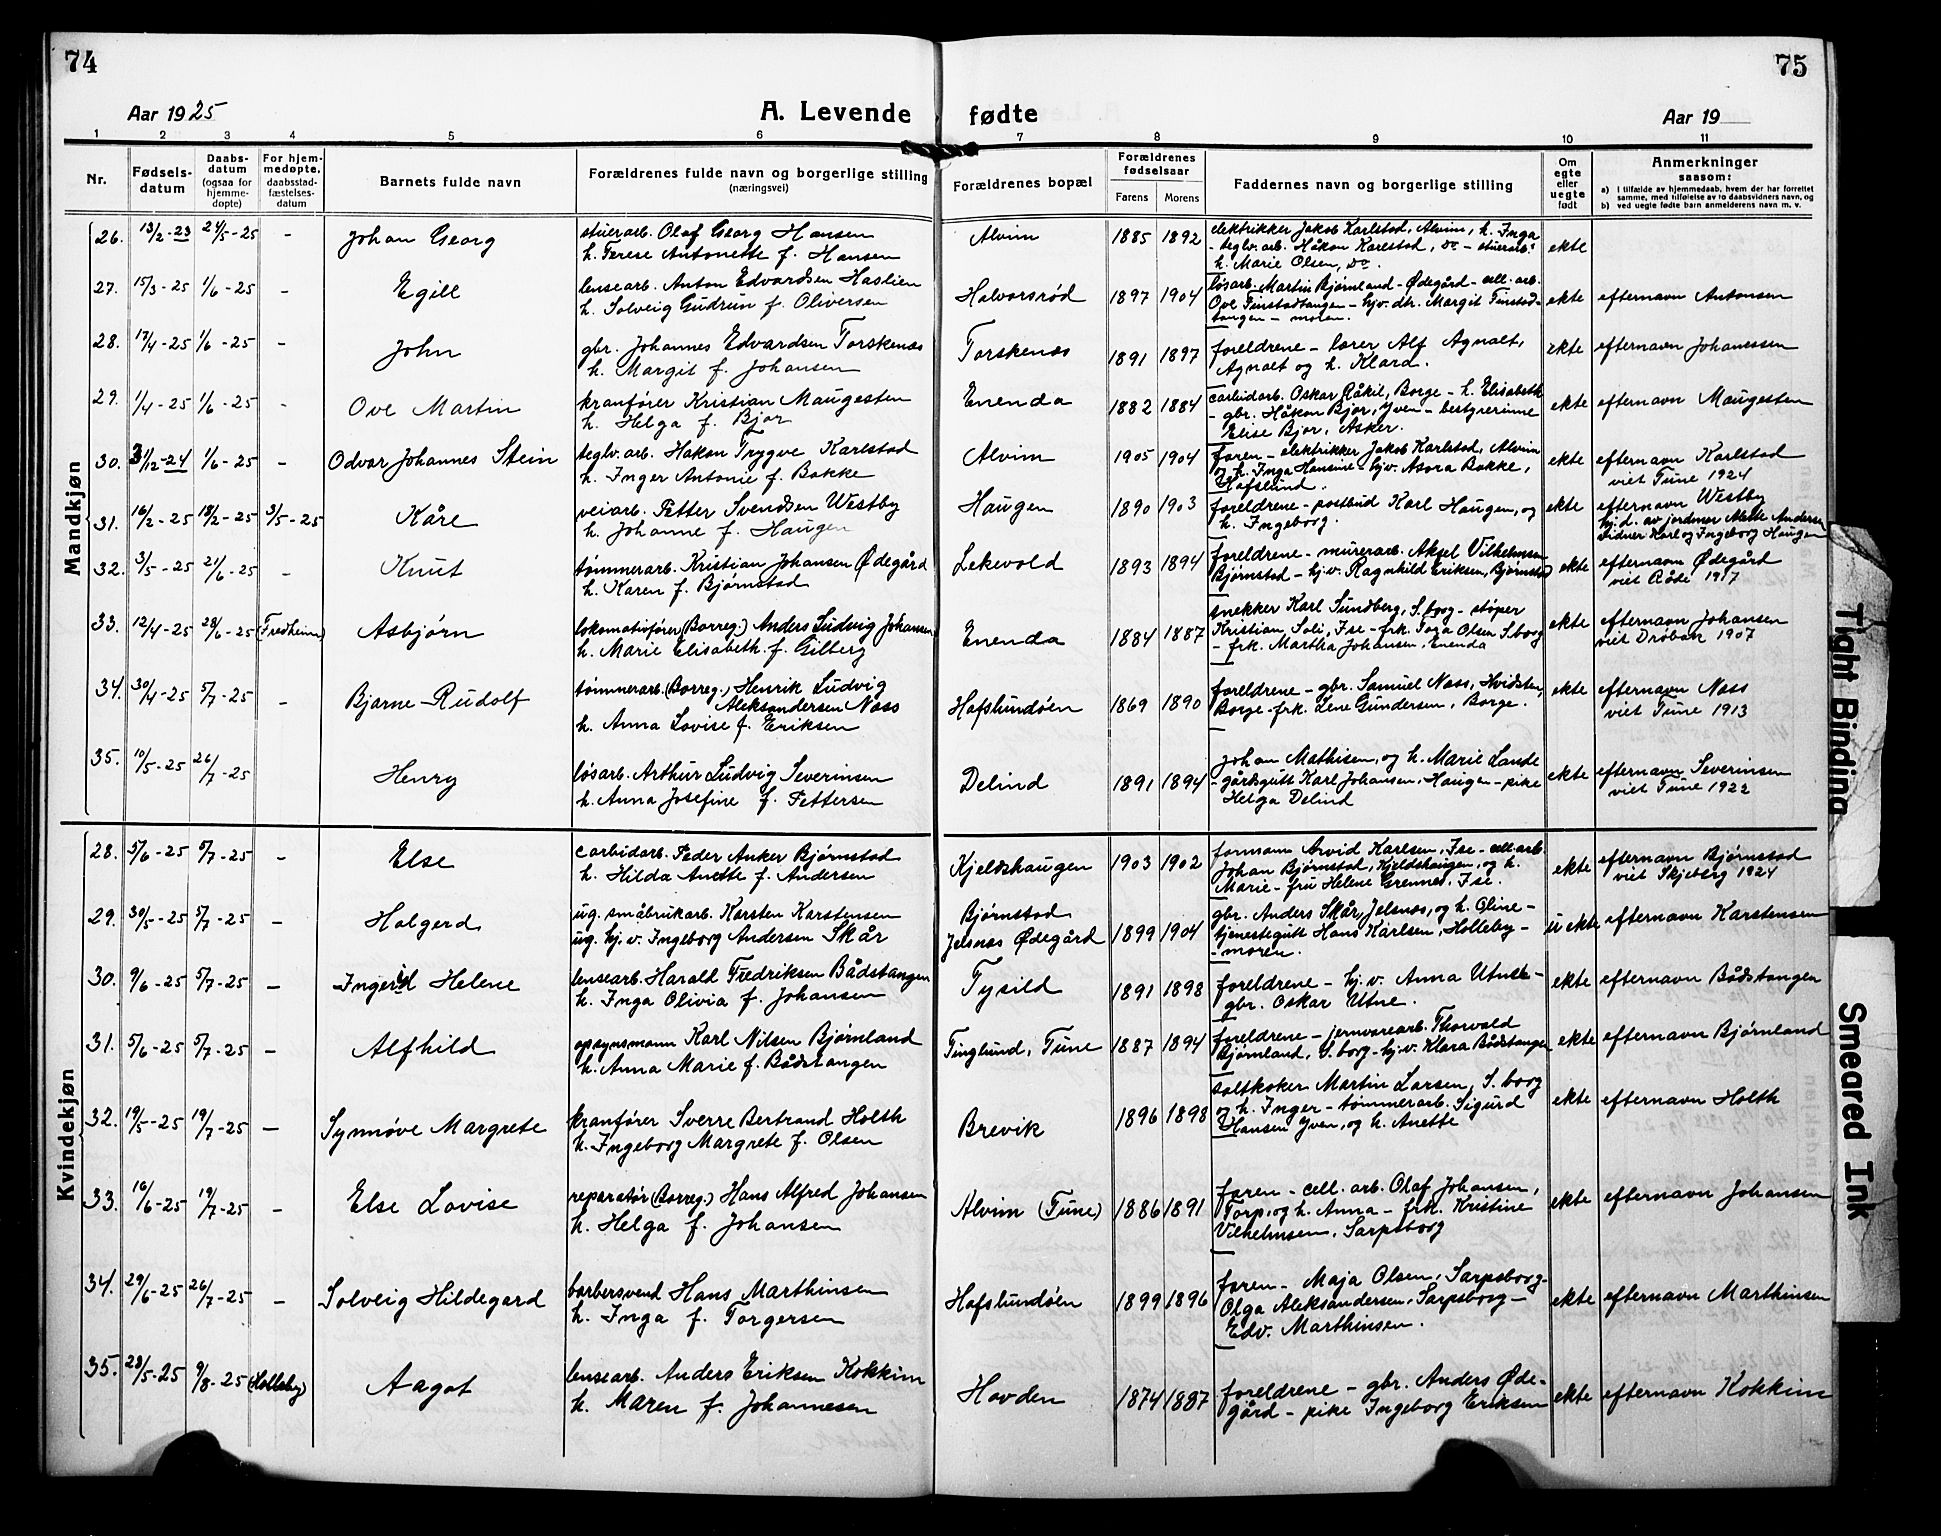 74
75
Aar 1925
A. Levende fødte
Aar 19
1 2 3 4 5 6 7 8 9 10 11
Nr.
Fødsels-
datum
Daabs-
datum
(ogsaa for
hjemme-
døpte)
For hjem-
medøpte,
daabsstad-
fæstelses-
datum
Barnets fulde navn
Forældrenes fulde navn og borgerlige stilling
(næringsvei)
Forældrenes bopæl
Forældrenes
fødselsaar
Farens Morens
Faddernes navn og borgerlige stilling
Om
egte
eller
uegte
født
Anmerkninger
saasom:
a) I tilfælde av hjemmedaab, hvem der har forrettet
samme, med tilføielse av to daabsvidners navn, og
b) ved uegte fødte barn anmelderens navn m. v.
Mandkjøn
26. 13/2-23 24/5-25 - Johan Georg
stuerarb. Olaf Georg Hansen
h. Terese Antonette f. Hansen
Alvim 1885 1892
elektrikker Jakob Karlstad, Alvim, h. Inga
- teglv. arb. Håkon Karlstad, do - stuerarb.
h. Marie Olsen, do.
ekte
27. 15/3-25 1/6-25 - Egill
lensearb. Anton Edvardsen Haslien
h. Solveig Gudrun f. Oliversen
Halvorsrød 1897 1904
løsarb. Martin Bjørnland - Ødegård - cell. arb.
Ove Tinstadtangen - hjv. dtr. Margit Tinstad-
tangen - moren.
ekte efternavn Antonsen
28. 17/4-25 1/6-25 - John
gbr. Johannes Edvardsen Torskenæs
h. Margit f. Johansen
Torskenæs 1891 1897
foreldrene - lærer Alf Agnalt,
Agnalt og h. Klara.
ekte efternavn Johanessen
29. 1/4-25 1/6-25 - Ove Martin
kranfører Kristian Maugesten
h. Helga f. Bjør
Enenda 1882 1884
carbidarb. Oskar Råkil, Borge - h. Elisabeth
- gbr. Håkon Bjør, Yven - bestyrerinne
Elise Bjør, Asker.
ekte efternavn Maugesten
30. 31/12-24 1/6-25 - Odvar Johannes Stein
teglv. arb. Hakon Trygve Karlstad
h. Inger Antonie f. Bakke
Alvim 1905 1904
faren - elektrikker Jakob Karlstad, Alvim
og h. Inga Hansine - hjv. Asora Bakke,
Hafslund.
ekte efternavn Karlstad
viet Tune 1924
31. 16/2-25 18/2-25 3/5-25 Kåre
veiarb. Petter Svendsen Westby
h. Johanne f. Haugen
Haugen 1890 1903
foreldrene - postbud Karl Haugen, og
h. Ingeborg.
ekte efternavn Westby
hj.d. av jordmor Mette Andersen
vidner Karl og Ingeborg Haugen
32. 3/5-25 21/6-25 - Knut
tømmerarb. Kristian Johansen Ødegård
h. Karen f. Bjørnstad
Lekevold 1893 1894
foreldrene - murerarb. Aksel Vilhelmsen
Bjørnstad - hj.v. Ragnhild Eriksen, Bjørnstad
ekte efternavn Ødegård
viet Råde 1917
33. 12/4-25 28/6-25 (Fredheim) Asbjørn
lokomotivfører (Borreg.) Anders Ludvig Johansen
h. Marie Elisabeth f. Gilberg
Enenda 1884 1887
snekker Karl Sundberg, S.borg - støper
Kristian Soli, Ise - frk. Tora Olsen S.borg
- frk. Martha Johansen, Enenda
ekte efternavn Johansen
viet Drøbak 1907
34. 30/4-25 5/7-25 - Bjarne Rudolf
tømmerarb. (Borreg.) Henrik Ludvig
Aleksandersen Næss
h. Anna Lovise f. Eriksen
Hafslundøen 1869 1890
foreldrene - gbr. Samuel Næss, Hvidsten,
Borge - frk. Lene Gundersen, Borge.
ekte efternavn Næss
viet Tune 1913
35. 10/5-25 26/7-25 Henry
løsarb. Arthur Ludvig Severinsen
h. Anna Josefine f. Pettersen
Delind 1891 1894
Johan Mathisen, og h. Marie Lande
- gårdsgutt Karl Johansen, Haugen - pike
Helga Delind
ekte efternavn Severinsen
viet Tune 1922
Kvindekjøn
28. 5/6-25 5/7-25 - Else
carbidarb. Peder Anker Bjørnstad
h. Hilda Anette f. Andersen
Kjeldshaugen 1903 1902
formann Arvid Karlsen, Ise - cell. arb.
Johan Bjørnstad, Kjeldshaugen, og h.
Marie - fru Helene Grenner, Ise.
ekte efternavn Bjørnstad
viet Skjeberg 1924
29. 30/5-25 5/7-25 - Halgerd
ug. småbrukarb. Karsten Karstensen
ug. hj.v. Ingeborg Andersen Skår
Bjørnstad
Jelsnæs Ødegård 1899 1904
gbr. Anders Skår, Jelsnæs, og h. Oline -
tjenestegutt Hans Karlsen, Holleby -
- moren.
u ekte efternavn Karstensen
30. 9/6-25 5/7-25 - Ingerid Helene
lensearb. Harald Fredriksen Bådstangen
h. Inga Olivia f. Johansen
Tysild 1891 1898
foreldrene - hj.v. Anna Utne -
gbr. Oskar Utne.
ekte efternavn Bådstangen
31. 5/6-25 5/7-25 - Alfhild
opsynsmann Karl Nilsen Bjørnland
h. Anna Marie f. Bådstangen
Tinglund, Tune 1887 1894
foreldrene - jernvarearb. Thorvald
Bjørnland, S.borg - hj.v. Klara Bådstangen
ekte efternavn Bjørnland
32. 19/5-25 19/7-25 - Synnøve Margrete
kranfører Sverre Bertrand Holth
h. Ingeborg Margrete f. Olsen
Brevik 1896 1898
saltkoker Martin Larsen, S.borg
og h. Inger - tømmerarb. Sigurd
Hansen Yven, og h. Anette
ekte efternavn Holth
33. 16/6-25 19/7-25 - Else Lovise
reparatør (Borreg.) Hans Alfred Johansen
h. Helga f. Johansen
Alvim (Tune) 1886 1891
faren - cell. arb. Olaf Johansen,
Torp, og h. Anna - frk. Kristine
Vilhelmsen, Sarpsborg
ekte efternavn Johansen
34. 29/6-25 26/7-25 - Solveig Hildegard
barbersvend Hans Marthinsen
h. Inga f. Torgersen
Hafslundøen 1899 1896
faren - Maja Olsen, Sarpsborg -
Olga Aleksandersen, Sarpsborg -
Edv. Marthinsen.
ekte efternavn Marthinsen
35. 28/5-25 9/8-25 (Holleby) Aagot
lensearb. Anders Eriksen Kokkim
h. Maren f. Johannesen
Hovden 1874 1887
foreldrene - gbr. Anders Øde-
gård - pike Ingeborg Eriksen
ekte efternavn Kokkim
Tight Binding
Smeared Ink